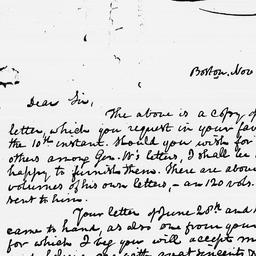 Boston, Nov
Dear Sir,
The above is a copy of
letter, which you request in your fav
the 10th instant. Should you wish for
others among Gen. W's letters, I shall be
happy to furnish them. There are about
volumes of his own letters, – an 120 vols.
sent to him.
Your letter of June 28th and
came to hand, as also one from your
for which I beg you will accept m